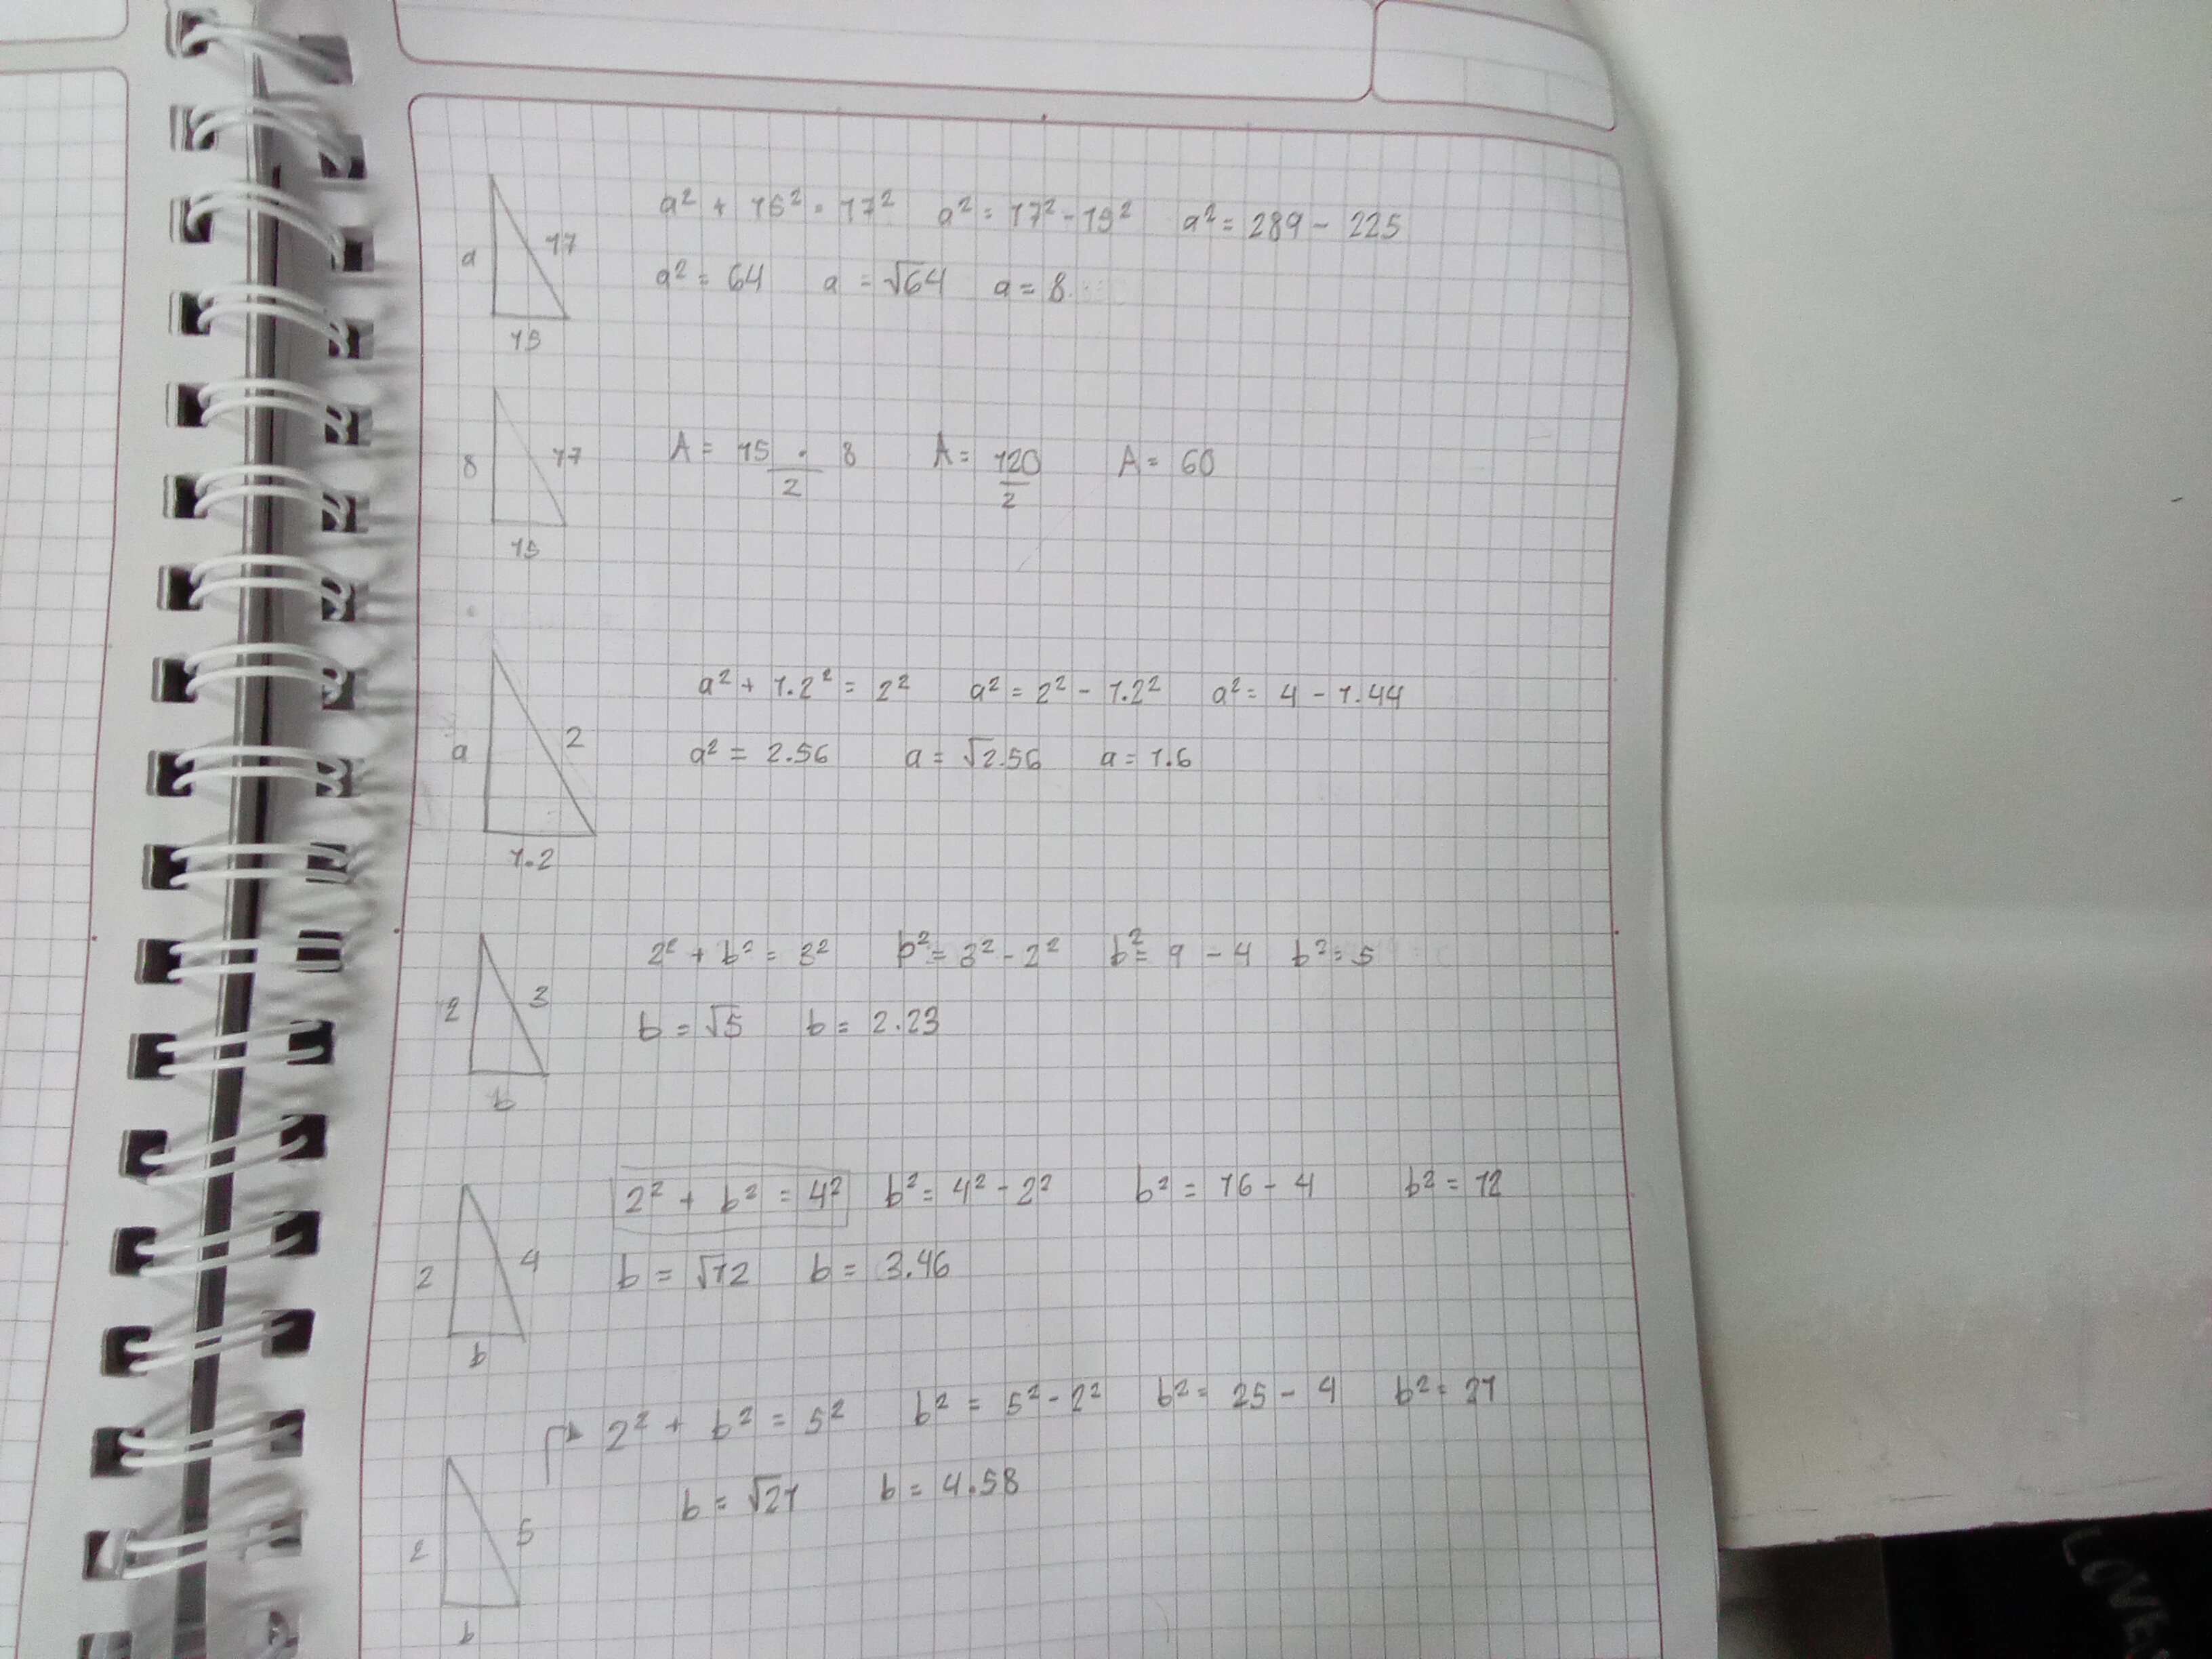 a² + 15² = 17² a² = 17² - 15² a² = 289 - 225
a 17
a² = 64 a = √64 a = 8
15
8 17 A = 15 · 8 A = 120 A = 60
2 2
15
a² + 1.2² = 2² a² = 2² - 1.2² a² = 4 - 1.44
a 2 a² = 2.56 a = √2.56 a = 1.6
1.2
2² + b² = 3² b² = 3² - 2² b² = 9 - 4 b² = 5
2 3 b = √5 b = 2.23
b
2² + b² = 4² b² = 4² - 2² b² = 16 - 4 b² = 12
2 4 b = √12 b = 3.46
b
2² + b² = 5² b² = 5² - 2² b² = 25 - 4 b² = 21
b = √21 b = 4.58
2 5
b